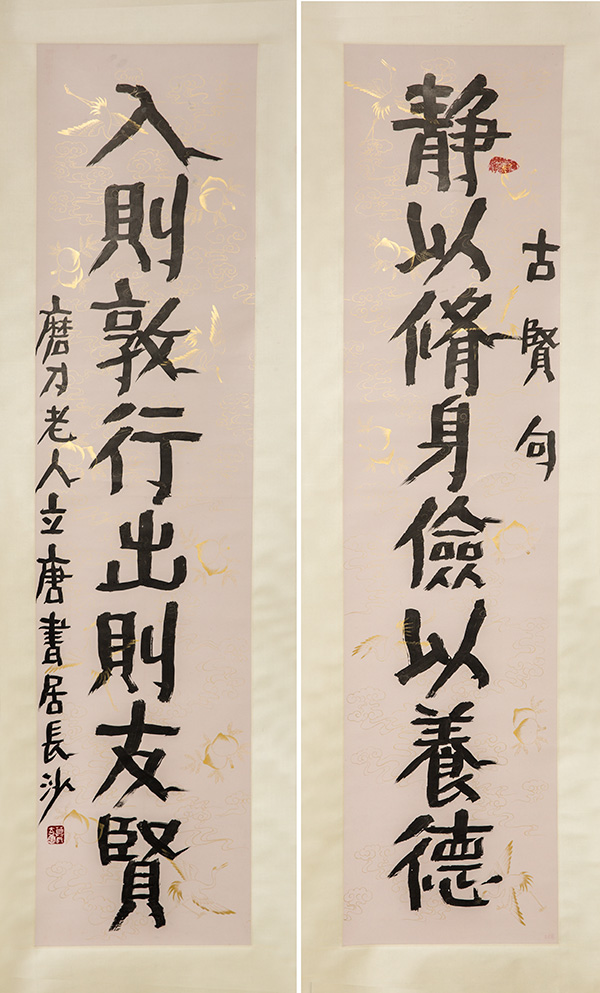 古賢句
靜以脩身儉以養德
入則敦行出則友賢
磨刀老人立唐書居長沙